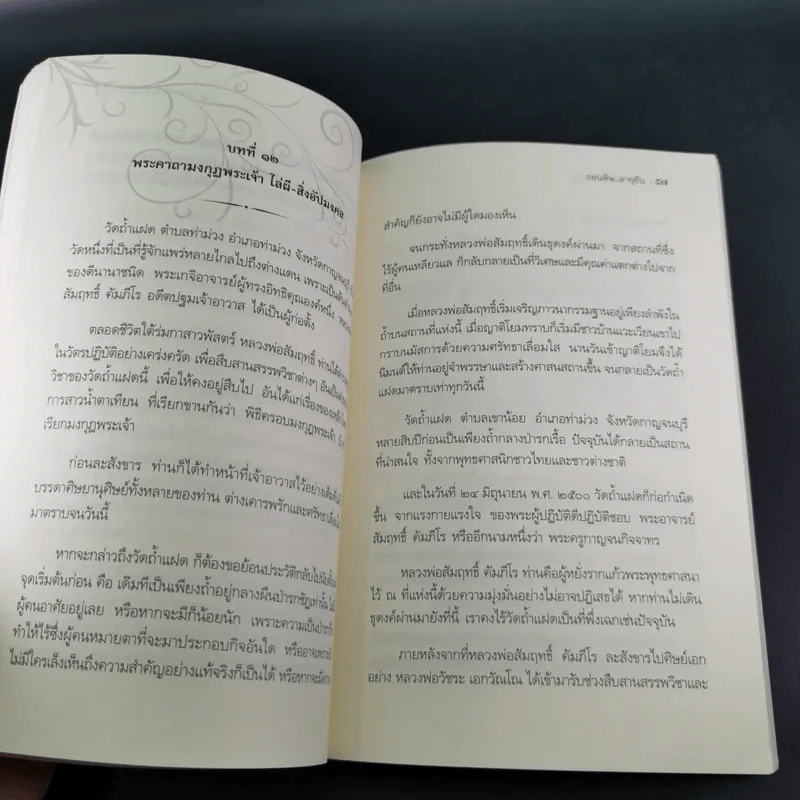 บทที่ ๑๒
พระคาถามงกุฎพระเจ้า ไล่ผี-สิ่งอัปมงคล
วัดถ้ำแฝด ตำบลท่าม่วง อำเภอท่าม่วง จังหวัดกาญจนบุรี
วัดหนึ่งที่เป็นที่รู้จักแพร่หลายไกลไปถึงต่างแดน เพราะเป็นต้นตำรับ
ของดีนานาชนิด พระเกจิอาจารย์ผู้ทรงอิทธิคุณองค์หนึ่ง
สัมฤทธิ์ คัมภีโร อดีตปฐมเจ้าอาวาส ได้เป็นผู้ก่อตั้ง
ตลอดชีวิตใต้ร่มกาสาวพัสตร์ หลวงพ่อสัมฤทธิ์ ท่านได้
ในวัตรปฏิบัติอย่างเคร่งครัด เพื่อสืบสานสรรพวิชาต่างๆ อันเป็น
วิชาของวัดถ้ำแฝดนี้ เพื่อให้คงอยู่สืบไป อันได้แก่เรื่องของ
การสาวน้ำตาเทียน ที่เรียกขานกันว่า พิธีครอบมงกุฎพระเจ้า
เรียกมงกุฎพระเจ้า
ก่อนละสังขาร ท่านก็ได้ทำหน้าที่เจ้าอาวาสไว้อย่าง
บรรดาศิษยานุศิษย์ทั้งหลายของท่าน ต่างเคารพรักและศรัทธา
มาตราบจนวันนี้
หากจะกล่าวถึงวัดถ้ำแฝด ก็ต้องขอย้อนประวัติกลับไป
จุดเริ่มต้นก่อน คือ เดิมทีเป็นเพียงถ้ำอยู่กลางผืนป่ารกชัฏเท่านั้น
ผู้คนอาศัยอยู่เลย หรือหากจะมีก็น้อยนัก เพราะความเป็นป่า
ทำให้ไร้ซึ่งผู้คนหมายตาที่จะมาประกอบกิจอันใด หรืออาจเพราะ
ไม่มีใครเล็งเห็นถึงความสำคัญอย่างแท้จริงก็เป็นได้ หรือหากจะมี
ถอนพิษ..อายุยืน : ๕๗
สำคัญก็ยังอาจไม่มีผู้ใดมองเห็น
จนกระทั่งหลวงพ่อสัมฤทธิ์เดินธุดงค์ผ่านมา จากสถานที่ซึ่ง
ไร้ผู้คนเหลียวแล ก็กลับกลายเป็นที่วิเศษและมีคุณค่าแตกต่างไปจาก
ที่อื่น
เมื่อหลวงพ่อสัมฤทธิ์เริ่มเจริญภาวนากรรมฐานอยู่เพียงลำพังใน
ถ้ำบนสถานที่แห่งนี้ เมื่อญาติโยมทราบก็เริ่มมีชาวบ้านแวะเวียนเข้าไป
กราบนมัสการด้วยความศรัทธาเลื่อมใส นานวันเข้าญาติโยมจึงได้
นิมนต์ให้ท่านอยู่จำพรรษาและสร้างศาสนสถานขึ้น จนกลายเป็นวัดถ้ำ
แฝดมาตราบเท่าทุกวันนี้
วัดถ้ำแฝด ตำบลเขาน้อย อำเภอท่าม่วง จังหวัดกาญจนบุรี
หลายสิบปีก่อนเป็นเพียงถ้ำกลางป่ารกเรื้อ ปัจจุบันได้กลายเป็นสถาน
ที่น่าสนใจ ทั้งจากพุทธศาสนิกชาวไทยและชาวต่างชาติ
และในวันที่ ๒๔ มิถุนายน พ.ศ. ๒๕๐๐ วัดถ้ำแฝดก็ก่อกำเนิด
ขึ้น จากแรงกายแรงใจ ของพระผู้ปฏิบัติดีปฏิบัติชอบ พระอาจารย์
สัมฤทธิ์ คัมภีโร หรืออีกนามหนึ่งว่า พระครูกาญจนกิจจาทร
หลวงพ่อสัมฤทธิ์ คัมภีโร ท่านคือผู้หยั่งรากแก้วพระพุทธศาสนา
ไว้ ณ ที่แห่งนี้ด้วยความมุ่งมั่นอย่างไม่อาจปฏิเสธได้ หากท่านไม่เดิน
ธุดงค์ผ่านมายังที่นี้ เราคงไร้วัดถ้ำแฝดเป็นที่พึ่งเฉกเช่นปัจจุบัน
ภายหลังจากที่หลวงพ่อสัมฤทธิ์ คัมภีโร ละสังขารไปศิษย์เอก
อย่าง หลวงพ่อวัชระ เอกวัณโณ ได้เข้ามารับช่วงสืบสานสรรพวิชาและ